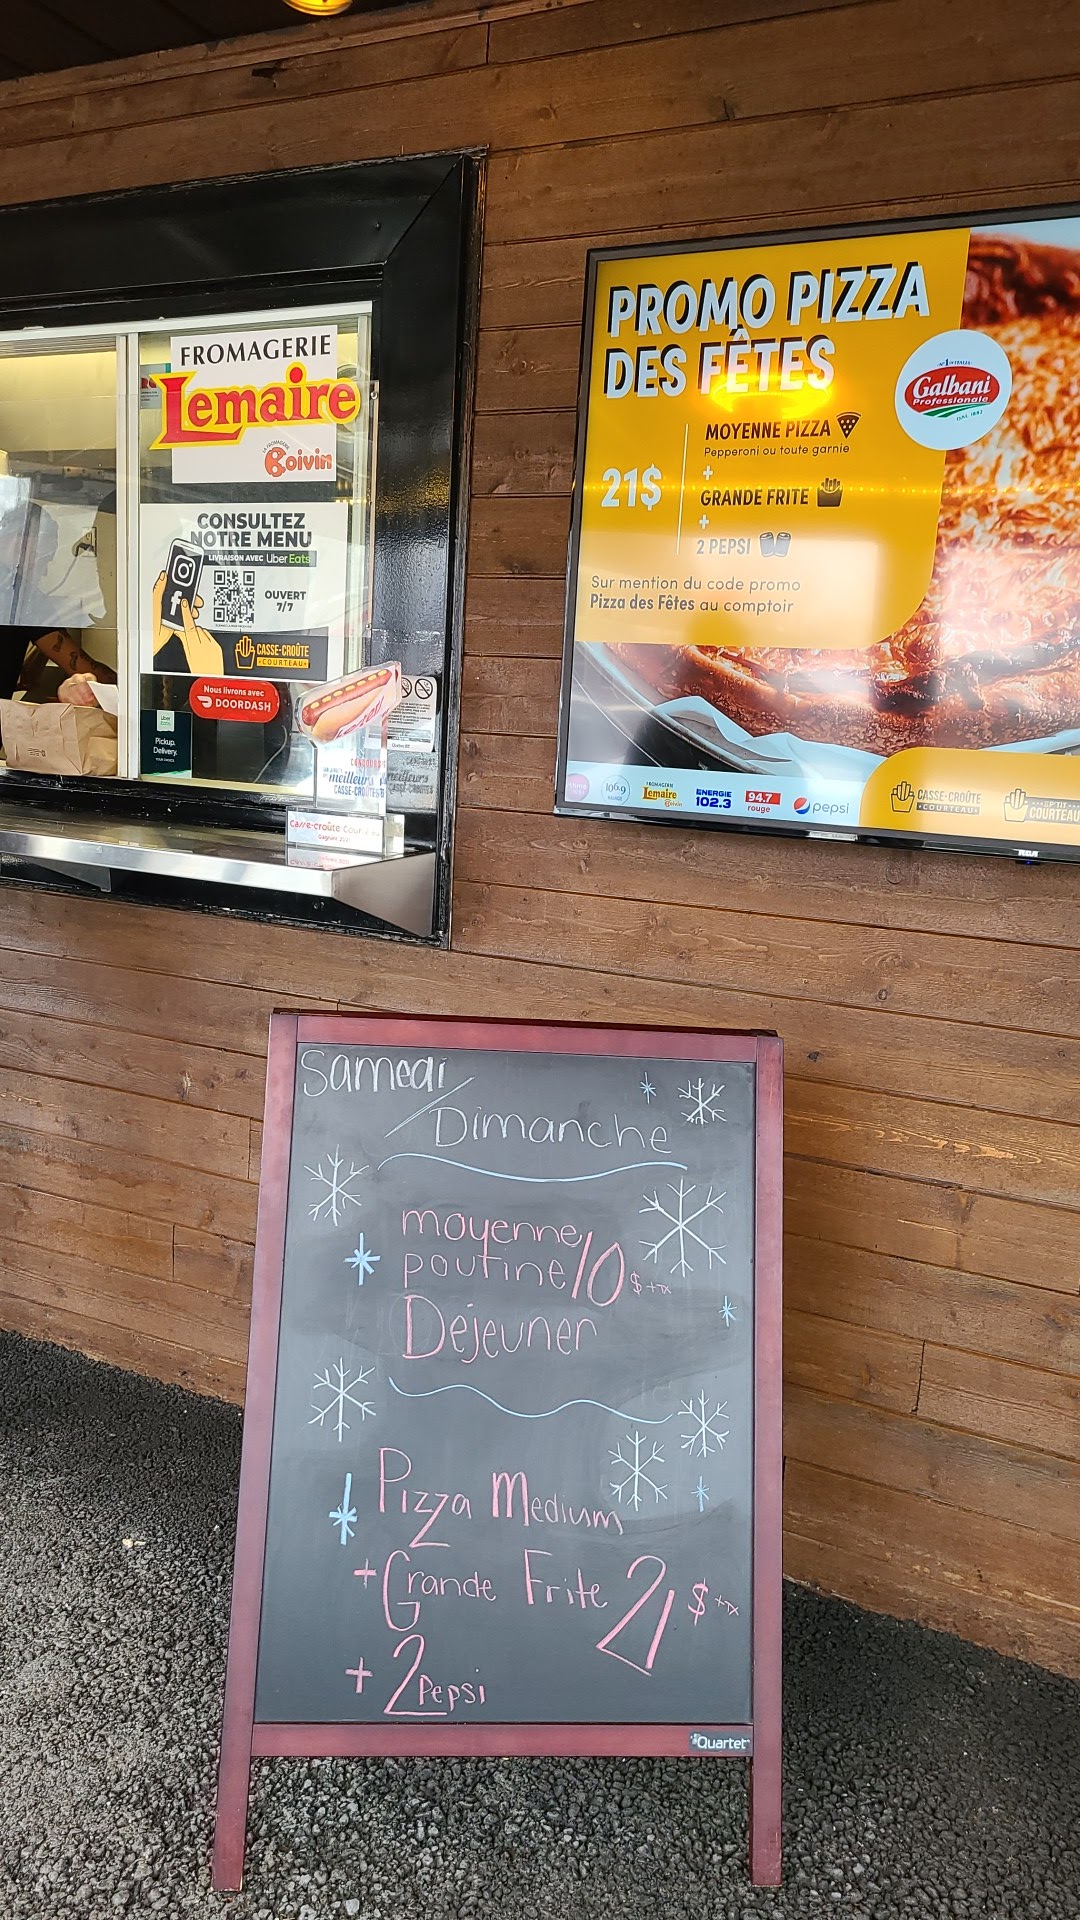 FROMAGERIE
Lemaire
LA FROMAGERIE
Boivin
CONSULTEZ
NOTRE MENU
LIVRAISON AVEC Uber Eats
OUVERT
7/7
CASSE-CROÛTE
COURTEAU
Nous livrons avec
DOORDASH
Uber
Eats
Pickup.
Delivery.
meilleurs
CASSE-CROÛTES
Casse-croûte
PROMO PIZZA
DES FÊTES
N°1 EN ITALIE
Galbani
Professionale
DAL 1882
21$
MOYENNE PIZZA
Pepperoni ou toute garnie
+
GRANDE FRITE
+
2 PEPSI
Sur mention du code promo
Pizza des Fêtes au comptoir
106.9
FROMAGERIE
Lemaire
Boivin
ÉNERGIE
102.3
94.7
rouge
pepsi
CASSE-CROÛTE
COURTEAU
P'TIT
COURTEAU
RCA
Samedi/
Dimanche
moyenne
poutine 10$+TX
Dejeuner
Pizza Medium
+Grande Frite 21$+TX
+ 2 Pepsi
Quartet